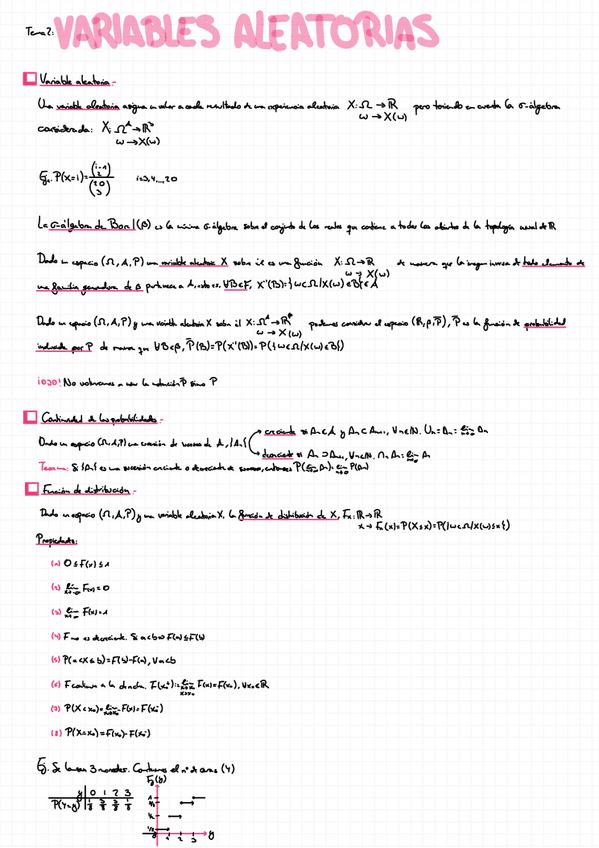 Tema 2: VARIABLES ALEATORIAS
Variable aleatoria:-
Una variable aleatoria asigna un valor a cada resultado de una experiencia aleatoria X: Ω → ℝ pero teniendo en cuenta la σ-álgebra
ω → X(ω)
considerada: X:
ω → X(ω)
Ej. P(X=i) = (i-1 2)/(20 3) i=3,4,...,20
La σ-álgebra de Borel (β) es la mínima σ-álgebra sobre el conjunto de los reales que contiene a todos los abiertos de la topología usual de ℝ
Dado un espacio (Ω, A, P) una variable aleatoria X sobre él es una función X: Ω → ℝ de manera que la imagen inversa de todo elemento de
ω → X(ω)
una familia generadora de β pertenece a A, esto es, ∀B∈F, X⁻¹(B)={ω∈Ω/X(ω)∈B}∈A
Dado un espacio (Ω, A, P) y una variable aleatoria X sobre él podemos considerar el espacio (ℝ, β, P̃), P̃ es la función de probabilidad
ω → X(ω)
inducida por P de manera que ∀B∈β, P̃(B)=P(X⁻¹(B))=P({ω∈Ω/X(ω)∈B})
¡OJO! No volveremos a usar la notación P̃ sino P
Continuidad de las probabilidades:-
creciente si An∈A y An⊂An+1, ∀n∈ℕ. ∪n An = lim An
Dado un espacio (Ω, A, P) una sucesión de sucesos de A, {An}
decreciente si An⊃An+1, ∀n∈ℕ, ∩n An = lim An
Teorema: Si {An} es una sucesión creciente o decreciente de sucesos, entonces P(lim An) = lim P(An)
Función de distribución:-
Dado un espacio (Ω, A, P) y una variable aleatoria X, la función de distribución de X, Fx: ℝ → ℝ
x → Fx(x)=P(X≤x)=P({ω∈Ω/X(ω)≤x})
Propiedades:
(1) 0≤F(x)≤1
(2) lim x→-∞ F(x)=0
(3) lim x→∞ F(x)=1
(4) F no es decreciente. Si a<b ⇒ F(a)≤F(b)
(5) P(a<X≤b)=F(b)-F(a), ∀a<b
(6) F continua a la derecha. F(x₀⁺)= lim F(x)=F(x₀), ∀x₀∈ℝ
(7) P(X<x₀)= lim F(x)=F(x₀⁻)
(8) P(X=x₀)=F(x₀)-F(x₀⁻)
Ej. Se lanzan 3 monedas. Contamos el nº de caras (Y)
Fy(y)
y 0 1 2 3
P(Y=y) 1/8 3/8 3/8 1/8
1
7/8
1/2
1/8
1 2 3 y